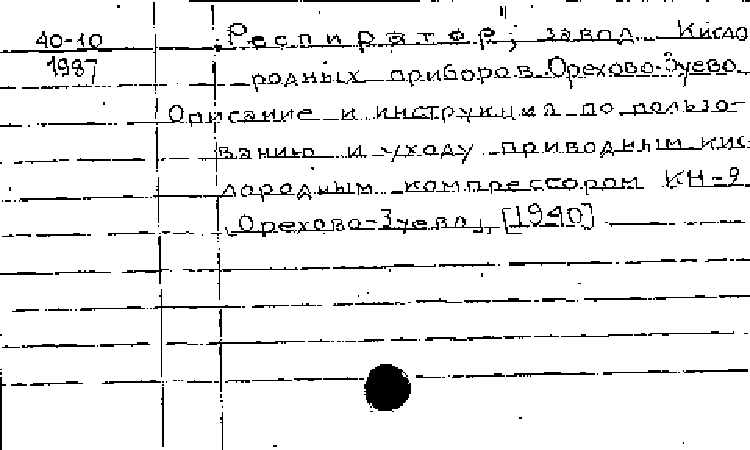 40-10
1987
"Респиратор", завод кисло
родных приборов. Орехово-Зуево.
Описание и инструкция по пользо-
ванию и уходу приводным кис-
лородным компрессором КН-9
Орехово-Зуево, [1940]